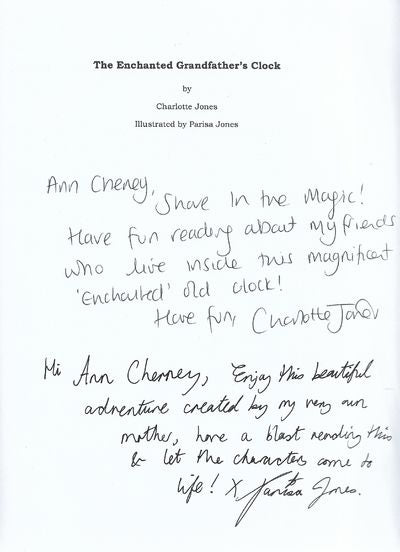 The Enchanted Grandfather's Clock
by
Charlotte Jones
Illustrated by Parisa Jones
Ann Cheney,
Share In the Magic!
Have fun reading about my friends
who live inside this magnificent
'Enchanted' old clock!
Have fun, Charlotte Jones
Hi Ann Cherney, Enjoy this beautiful
adventure created by my very own
mother, have a blast reading this
& let the characters come to
life! X Parisa Jones.